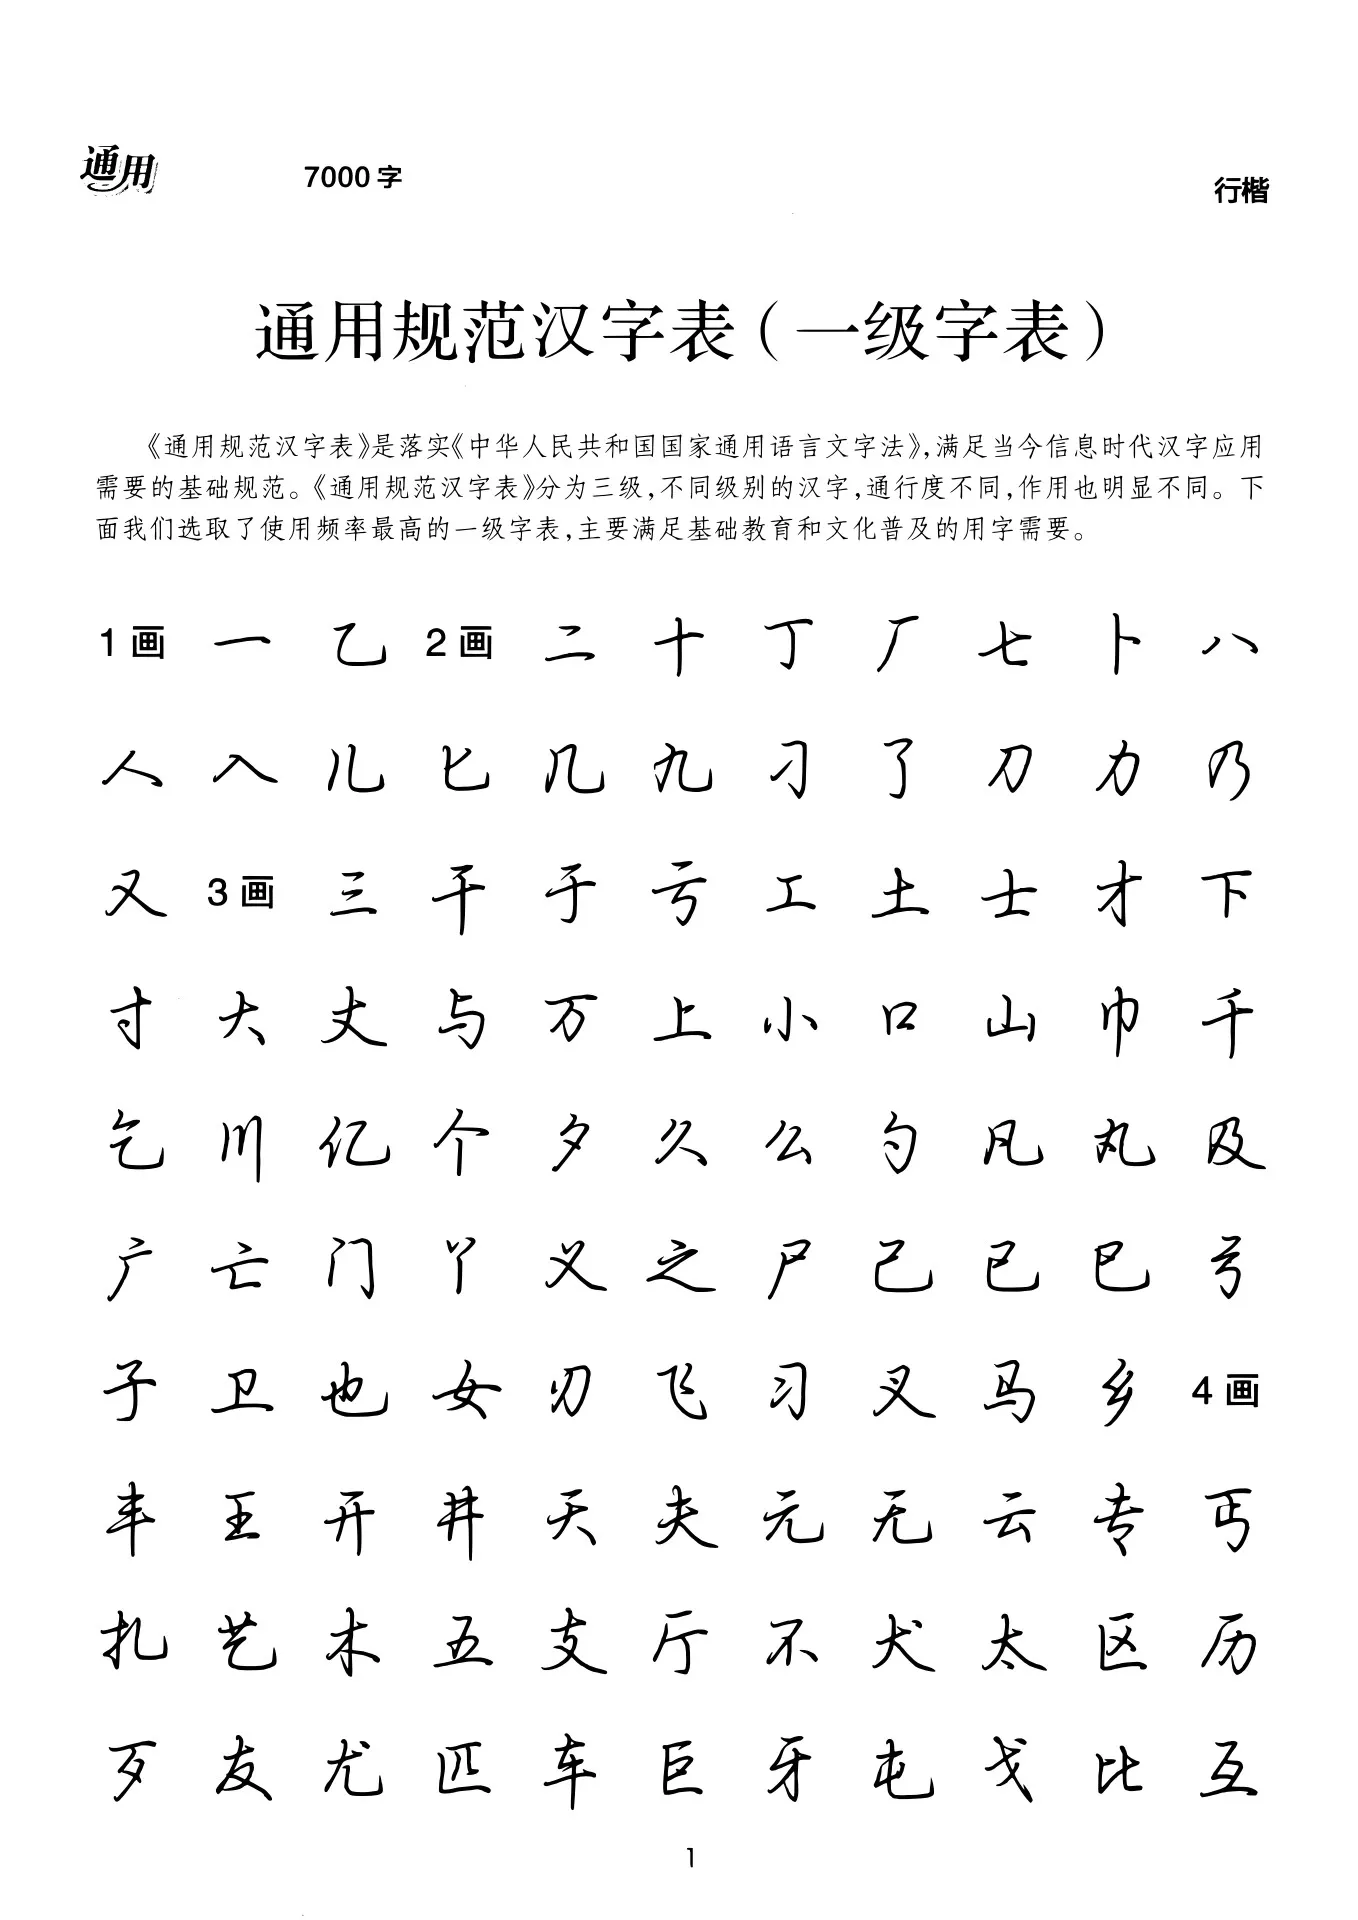 通用 7000 字 行楷
通用规范汉字表（一级字表）
《通用规范汉字表》是落实《中华人民共和国国家通用语言文字法》，满足当今信息时代汉字应用
需要的基础规范。《通用规范汉字表》分为三级，不同级别的汉字，通行度不同，作用也明显不同。下
面我们选取了使用频率最高的一级字表，主要满足基础教育和文化普及的用字需要。
1 画 一 乙 2 画 二 十 丁 厂 七 卜 八
人 入 儿 匕 几 九 刁 了 刀 力 乃
又 3 画 三 干 于 亏 工 土 士 才 下
寸 大 丈 与 万 上 小 口 山 巾 千
乞 川 亿 个 夕 久 么 勺 凡 丸 及
广 亡 门 丫 义 之 尸 己 已 巳 弓
子 卫 也 女 刃 飞 习 叉 马 乡 4 画
丰 王 开 井 天 夫 元 无 云 专 丐
扎 艺 木 五 支 厅 不 犬 太 区 历
歹 友 尤 匹 车 巨 牙 屯 戈 比 互
1